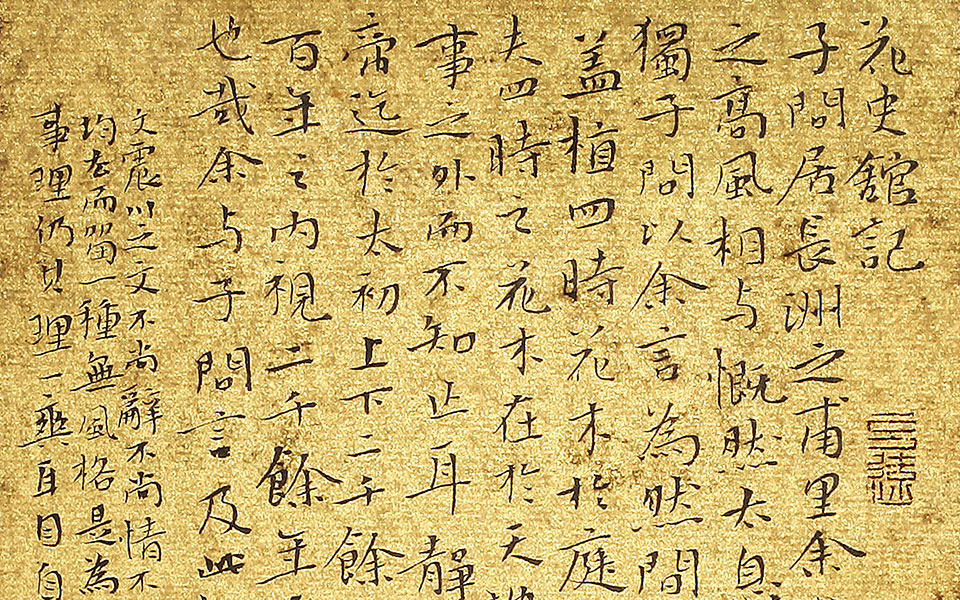 花史館記
子問居長洲之甫里余
之高風相与慨然太息
獨子問以余言為然間
蓋植四時花木於庭
夫四時之花木在於天
事之外而不知止耳靜
帝迄於太初上下二千餘
百年之內視二千餘年
也哉余与子問言及此
文震川之文不尚辭不尚情不
均去而留一種無風格是為
事理仍其理一耳目自